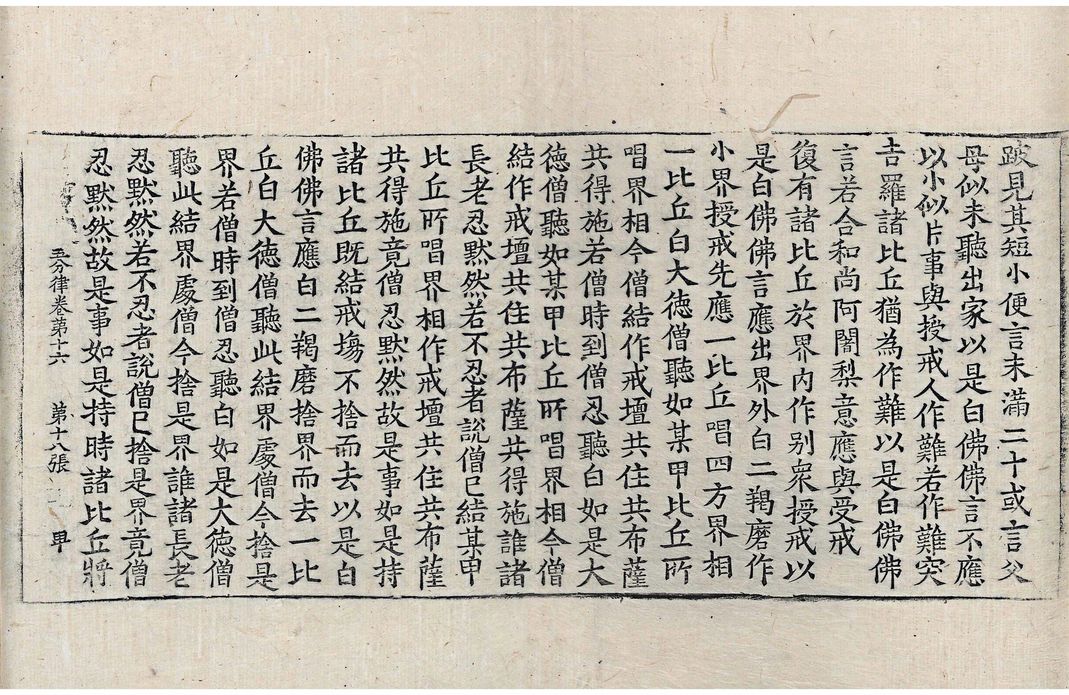 跋見其短小便言未滿二十或言父
母似未聽出家以是白佛佛言不應
以小似片事與授戒人作難若作難突
吉羅諸比丘猶為作難以是白佛佛
言若合和尚阿闍梨意應與受戒
復有諸比丘於界內作別衆授戒以
是白佛佛言應出界外白二羯磨作
小界授戒先應一比丘唱四方界相
一比丘白大德僧聽如某甲比丘所
唱界相今僧結作戒壇共住共布薩
共得施若僧時到僧忍聽白如是大
德僧聽如某甲比丘所唱界相今僧
結作戒壇共住共布薩共得施誰諸
長老忍黙然若不忍者說僧已結某甲
比丘所唱界相作戒壇共住共布薩
共得施竟僧忍黙然故是事如是持
諸比丘既結戒場不捨而去以是白
佛佛言應白二羯磨捨界而去一比
丘白大德僧聽此結界處僧今捨是
界若僧時到僧忍聽白如是大德僧
聽此結界處僧今捨是界誰諸長老
忍黙然若不忍者說僧已捨是界竟僧
忍黙然故是事如是持時諸比丘將
五分律卷第十六 第十六張 甲